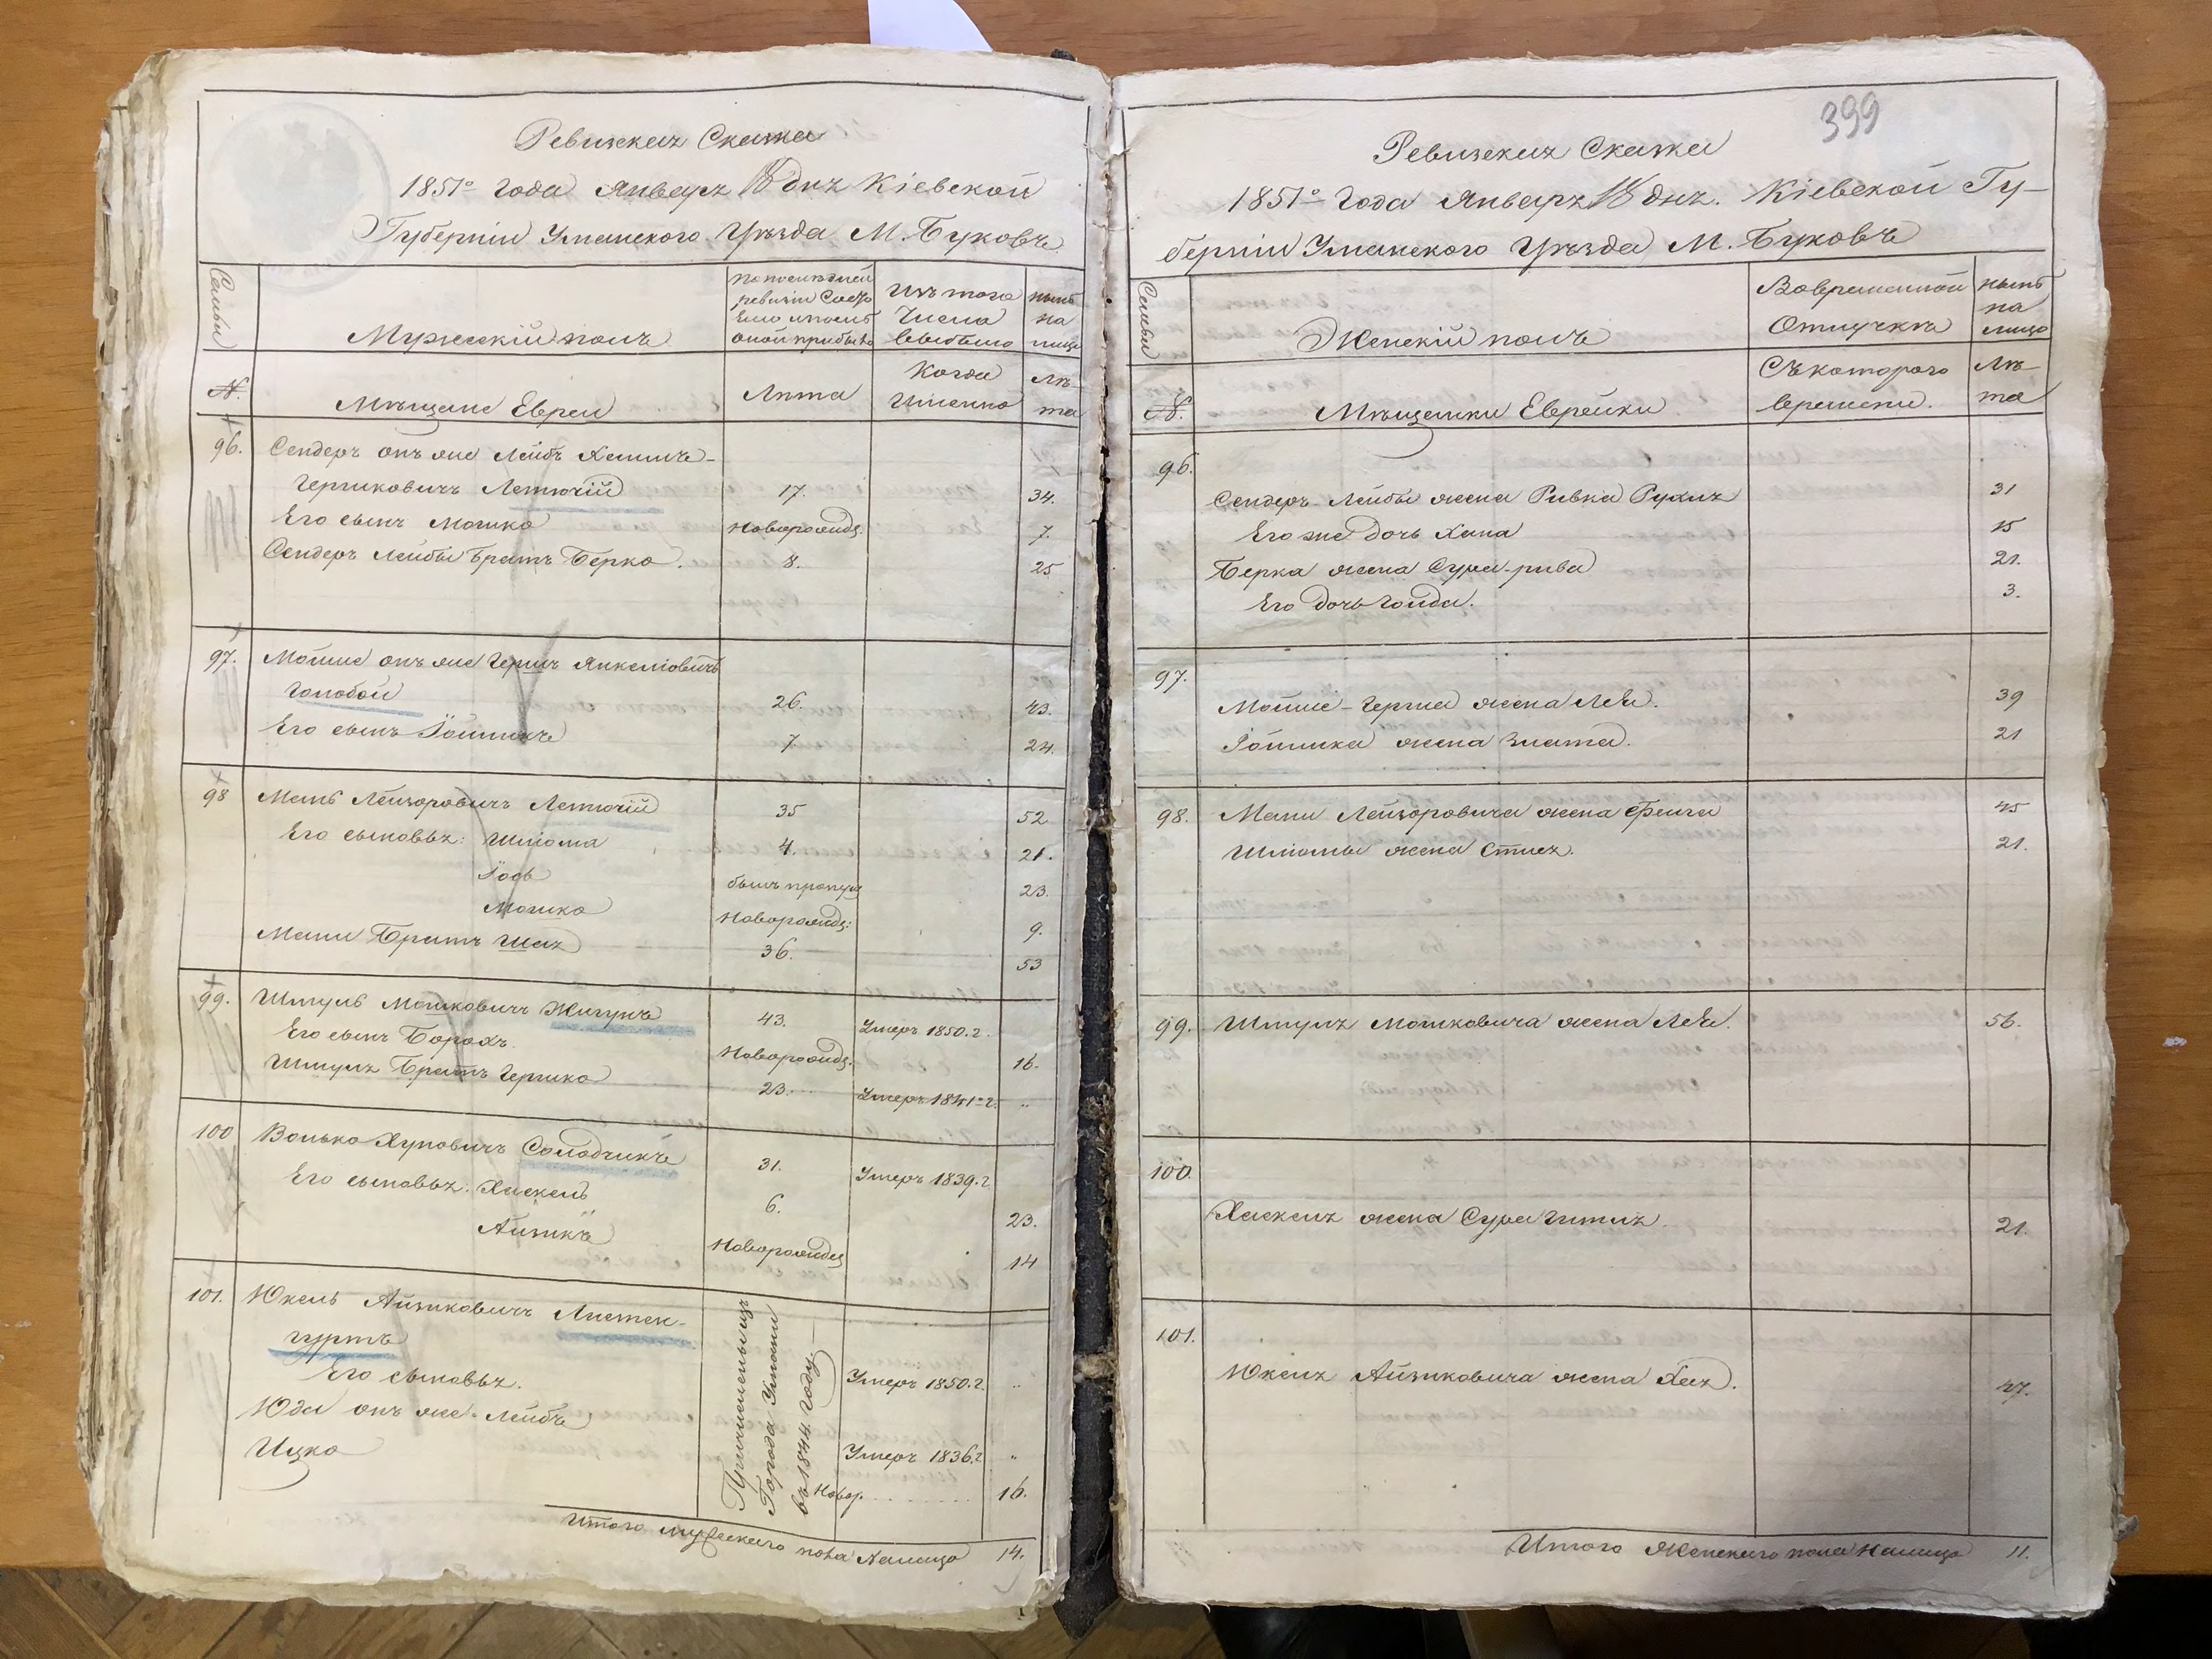 Ревизская Сказка
1851го Года Января 18 дня Кіевской
Губерніи Уманского Уѣзда М. Буковъ
Семьи
Мужескій полъ
По послѣдней
ревизіи Состо
оной прибыло
Изъ того
Числа
выбыло
нынѣ
на
лицо
№.
Мѣщане Евреи
Лѣта
Когда
Именно
Лѣ-
та
96.
Сендеръ онъ же Лейбъ
Гершковичъ Летючій
17.
34.
Его сынъ Мошко
Новорожд.
7.
Сендеръ Лейбы братъ Берко.
8.
25
97.
Мойше онъ же Гершъ Янкеліовичъ
Голобой
26.
43.
Его сынъ Іойникъ
7
24.
98
Мань Лейзоровичъ Летючій
35
52
Его сыновья: Шліома
4.
21.
Іось
былъ пропущ
23.
Мошко
Новорожд:
9.
Мани Братъ Шая
36.
53
99.
Шмуль Мошковичъ Жигунъ
43.
Умеръ 1850. г.
Его сынъ Борохъ
Новорожд.
16.
Шмуля Братъ Гершко
23.
Умеръ 1841го г.
"
100
Волько Хуновичъ Солодчикъ
31.
Умеръ 1839. г.
Его сыновья: Хаскель
6.
23.
Айзикъ
Новорожде
14
101.
Юкель Айзиковичъ Листен-
гуртъ
Его сыновья.
Юда онъ же Лейбъ
Ицко
Причисленъ изъ
Города Умани
въ 1844 году
Умеръ 1850. г.
"
Умеръ 1836. г.
"
Новор.
16.
Итого мужескаго пола налицо
14.
399
Ревизская Сказка
1851го Года Января 18 дня. Кіевской Гу-
берніи Уманского Уѣзда М. Буковъ
Семьи
Женскій полъ
Во временной
Отлучкѣ
нынѣ
на
лицо
№.
Мѣщанки Еврейки
Съ котораго
времени.
Лѣ-
та
96.
Сендеръ Лейбы жена Ривка Рухля
31
Его же дочь Хана
15
Берка жена Сура-рива
21.
Его дочь Гоида.
3.
97.
Мойше-Герша жена Леа.
39
Іойника жена Злата.
21
98.
Мани Лейзоровича жена Фейга
45
Шліомы жена Стися.
21.
99.
Шмуля Мошковича жена Леа.
56.
100.
Хаскеля жена Сура Гитля.
21.
101.
Юкеля Айзиковича жена Хая.
47.
Итого Женскаго пола налицо
11.